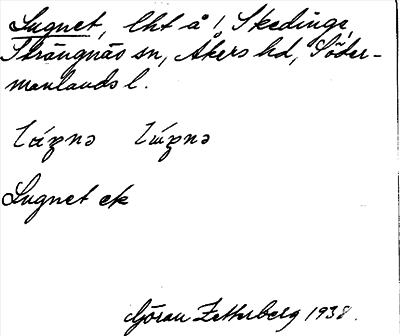 Lugnet, lht å / Skedinge,
Strängnäs sn, Åkers hd, Söder-
manlands l.
Lugnet ek
Göran Zetterberg 1938.